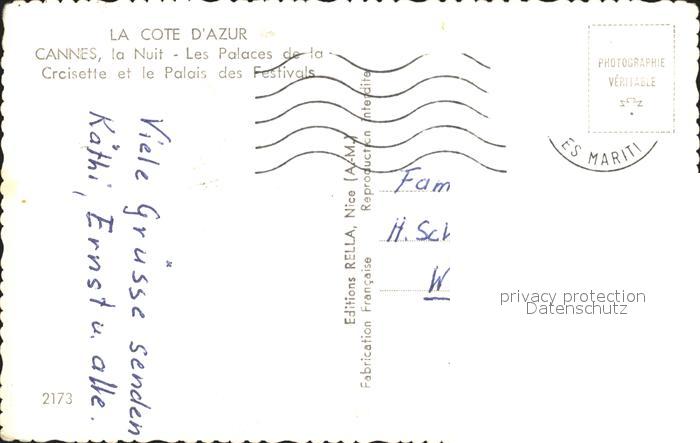 LA COTE D'AZUR
CANNES, la Nuit - Les Palaces de la
Croisette et le Palais des Festivals
Viele Grüsse senden
Käthi, Ernst u. alle.
2173
Editions RELLA, Nice (A.-M.)
Fabrication Française Reproduction Interdite
PHOTOGRAPHIE
VÉRITABLE
ES MARITI
Fam
H. Sch
W
privacy protection
Datenschutz